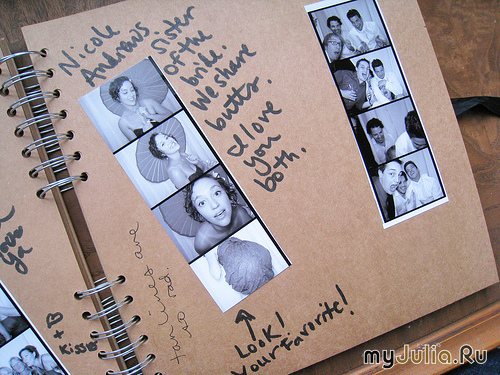 Nicole
Andrews
Sister
of the
bride.
We share
butts.
I love
you
both.
tan lines are
so rad.
Look!
your favorite!
love
ya
+ B
Kisses
myJulia.Ru